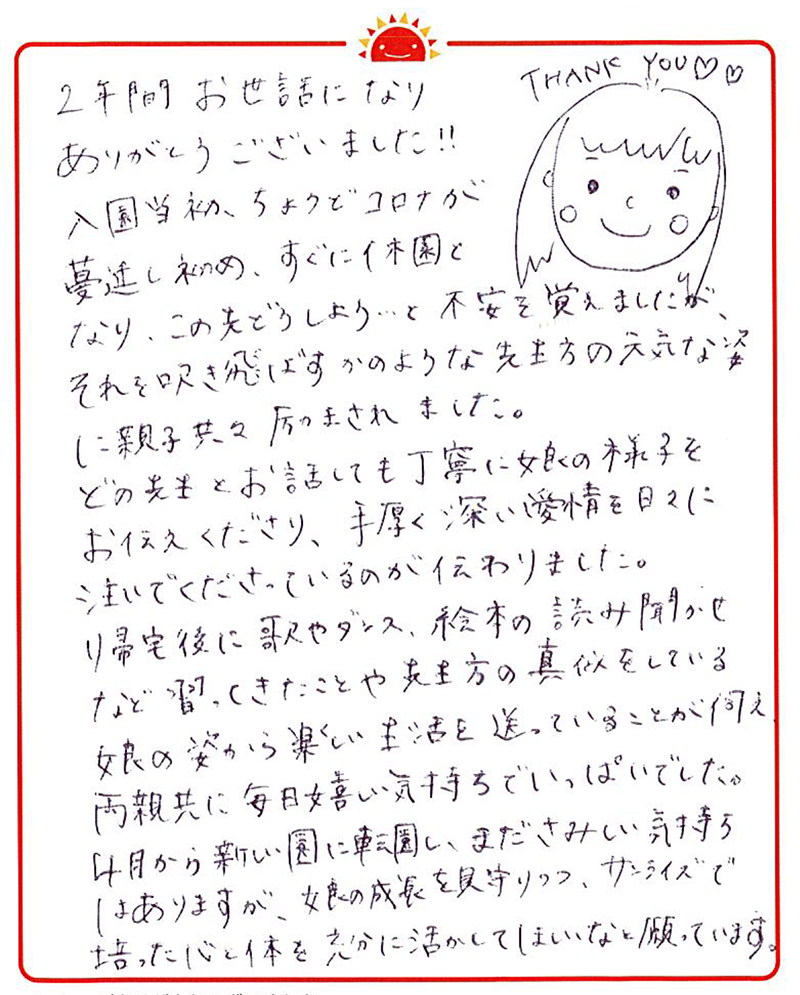 THANK YOU♡♡
2年間 お世話になり
ありがとうございました!!
入園当初、ちょうどコロナが
蔓延し初め、すぐに休園と
なり、この先どうしよう…と不安を覚えましたが、
それを吹き飛ばすかのような先生方の元気な姿
に親子共々 励まされました。
どの先生とお話しても丁寧に娘の様子を
お伝えくださり、手厚く深い愛情を日々に
注いでくださっているのが伝わりました。
り帰宅後に歌やダンス、絵本の読み聞かせ
など習ってきたことや先生方の真似をしている
娘の姿から楽しい生活を送っていることが伺え、
両親共に毎日嬉しい気持ちでいっぱいでした。
4月から新しい園に転園し、まださみしい気持ち
はありますが、娘の成長を見守りつつ、サンライズで
培った心と体を充分に活かしてほしいなと願っています。